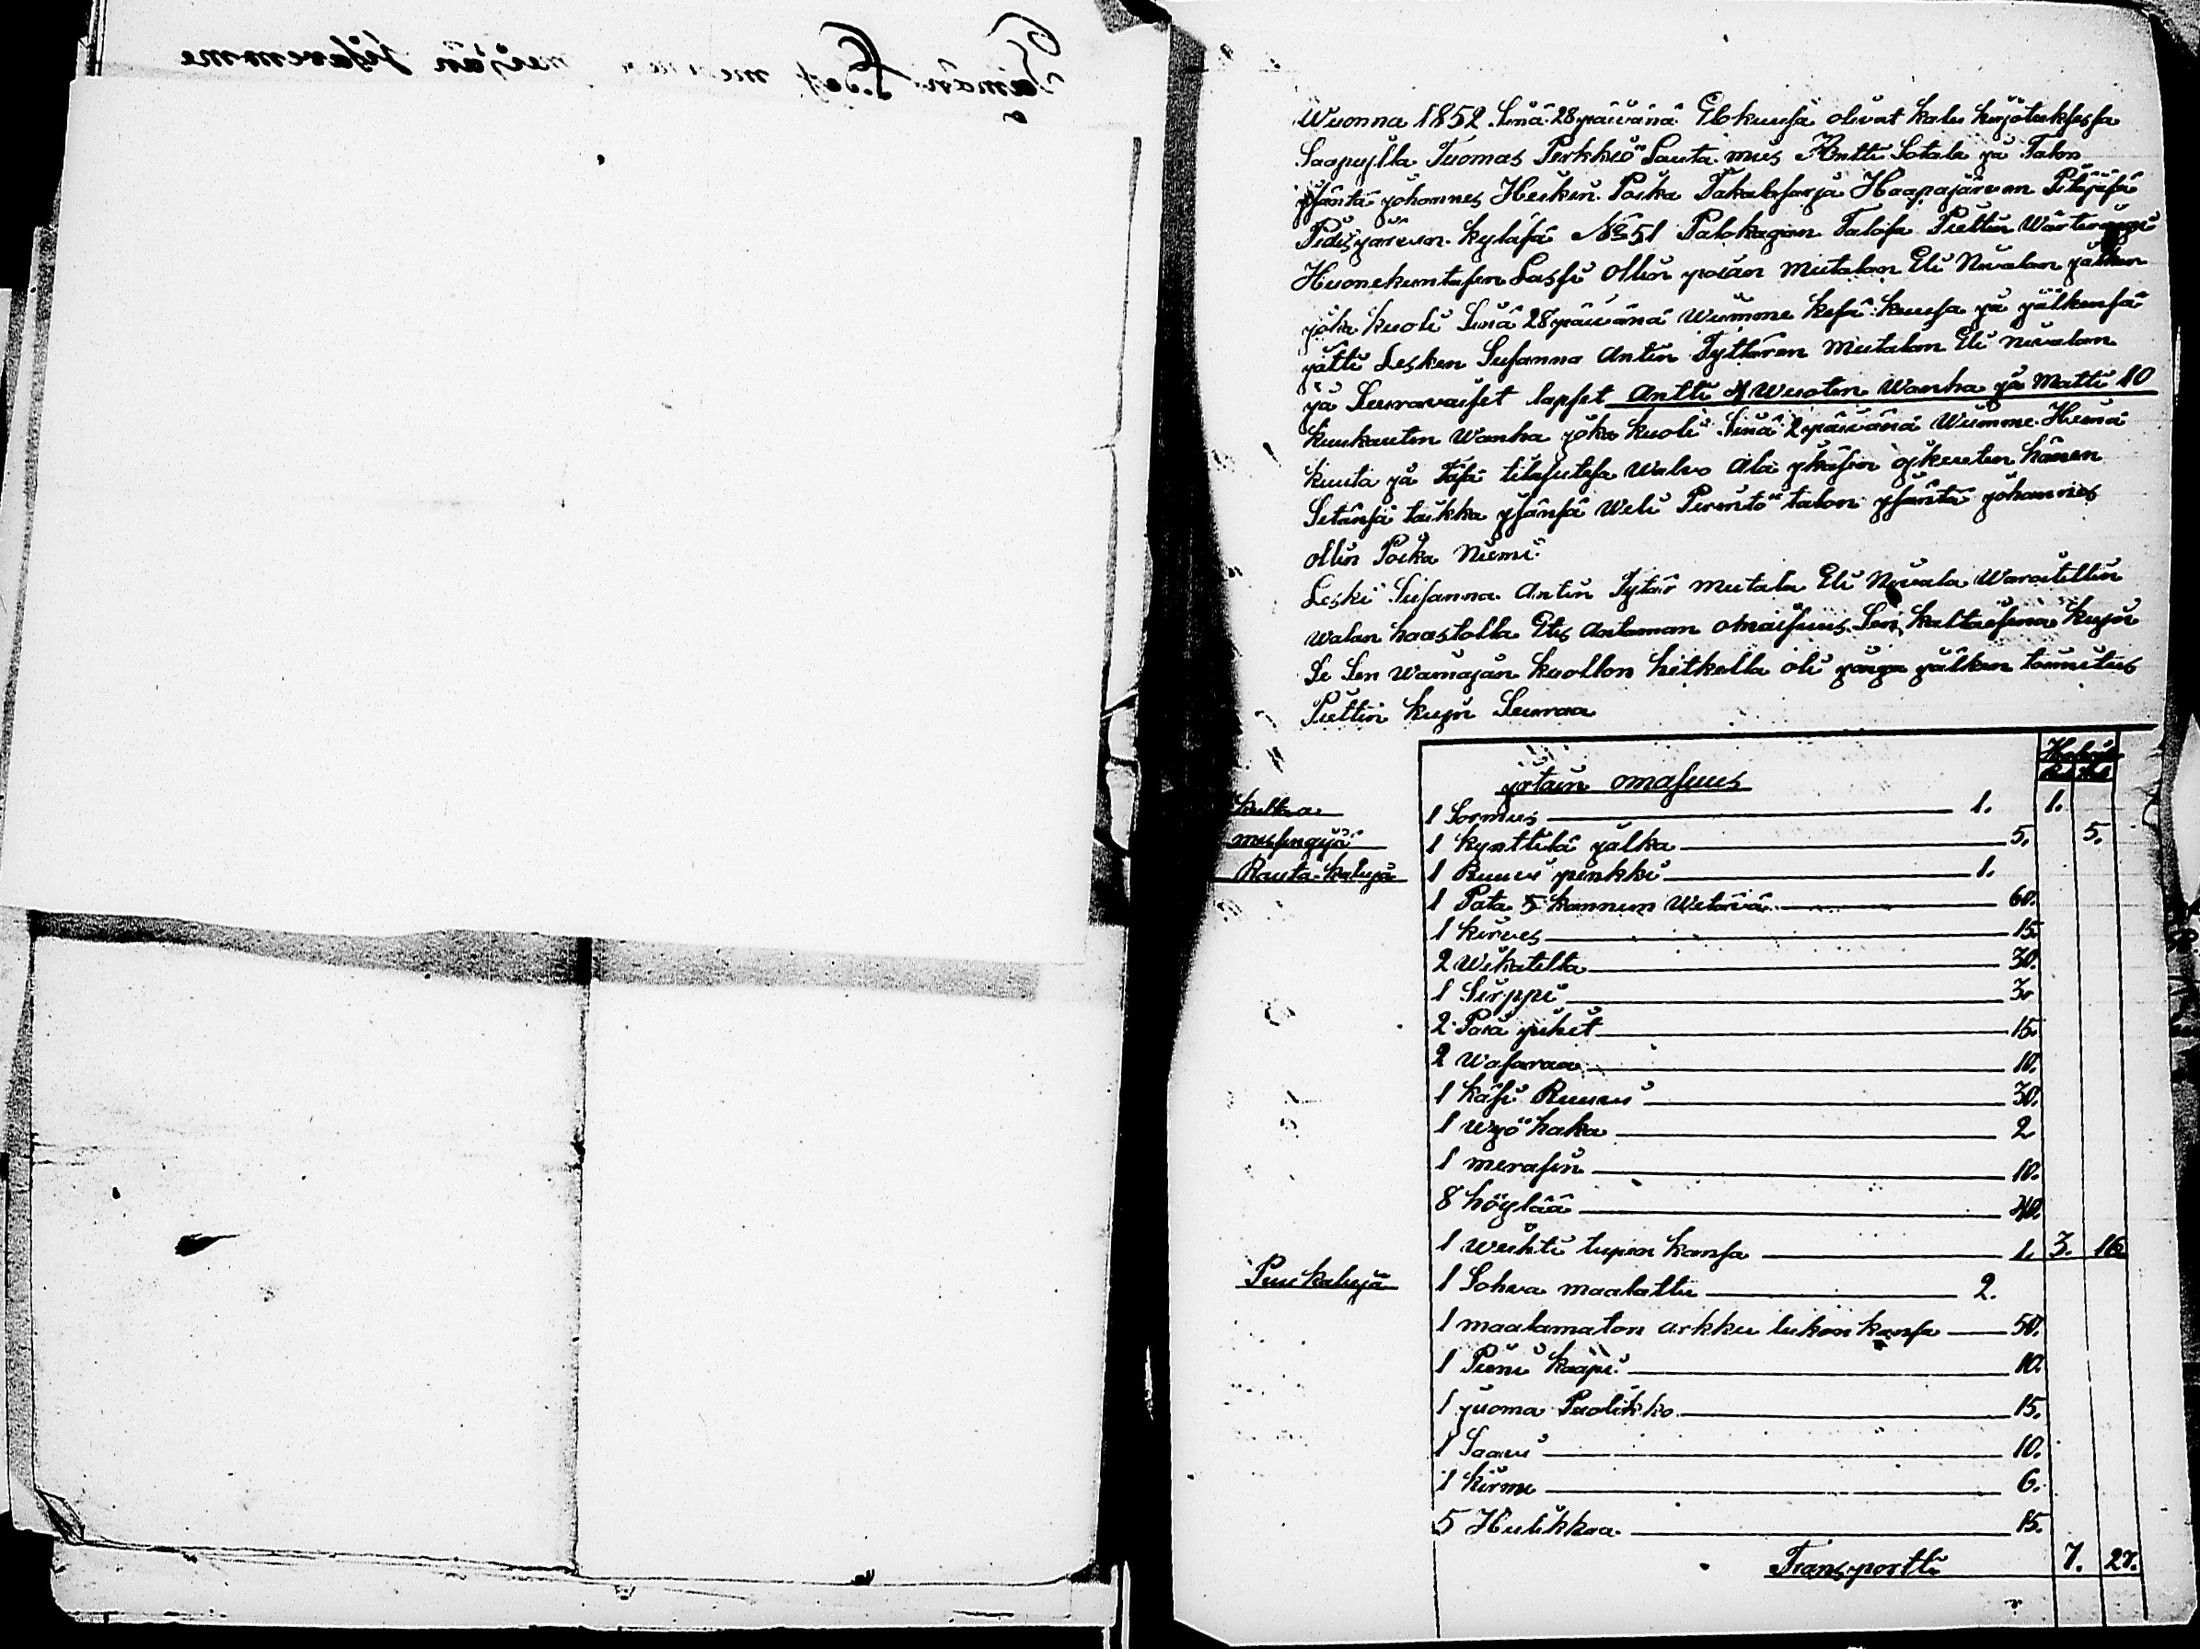 Wuonna 1852 Sinä 28 päivänä Elokuusa olivat kalu kirjotuksesa
Saapujlla Tuomas Perkkiö Lauta mies Antti Sotala ja Talon
jsäntä johannes Heikin Poika Takalosarja Haapajärven Pitäjäsä
Pidisjärven kyläsä No 51 Palokagan Talosa Piettin
Huonekuntasen Lassi Ollin pojan Mutalan Eli Nivalan jälken
joka kuoli Sinä 28 päivänä Wiimme kesä kuusa ja jälkensä
jätti Lesken Susanna Antin Tyttären Mutalan Eli nivalan
ja Seuravaiset lapset Antti 4 Wuoten Wanha ja Matti 10
kuukauten Wanha joka kuoli Sinä 2 päivänä Wiimme Heinä
kuuta ja Täsä tilasutesa Walvo ala jkäsen ojkeuten hänen
Setänsä taikka jsänsä Weli Perintö talon jsäntä johannes
ollin Poika Niemi
Leski Susanna Antin Tytär Mutala Eli Nivala Waroitettin
Walan haastolla Etes Antaman omaisuus Sen kaltaisena kujn
Se Sen Wainajan kuollon hetkella oli jonga jälken toimitus
Piettin kujn Seuraa
jrtain omasuus
kulta 1 Sormus 1. 1.
messingijä 1 kynttilä jalka 5. 5.
Rauta kaluja 1 Ruuvi pinkki 1.
1 Pata 5 kannun Wetävä 60.
1 kirves 15.
2 Wikatetta 30.
1 Sirppi 3.
2 Pora 15.
2 Wasaraa 10.
1 käsi Ruuvi 30.
1 Wyö haka 2
1 merasin 10.
8 höylää 40
1 Weihti tupen kansa 1. 3. 16
Puu kaluja 1 Sohva maalattu 2.
1 maalamaton arkku lukon kansa 50.
1 Pieni kaapi 10.
1 juoma Puolikko 15.
1 Saavi 10.
1 kirnu 6.
5 Hulikkaa 15.
Transportti 7. 27.